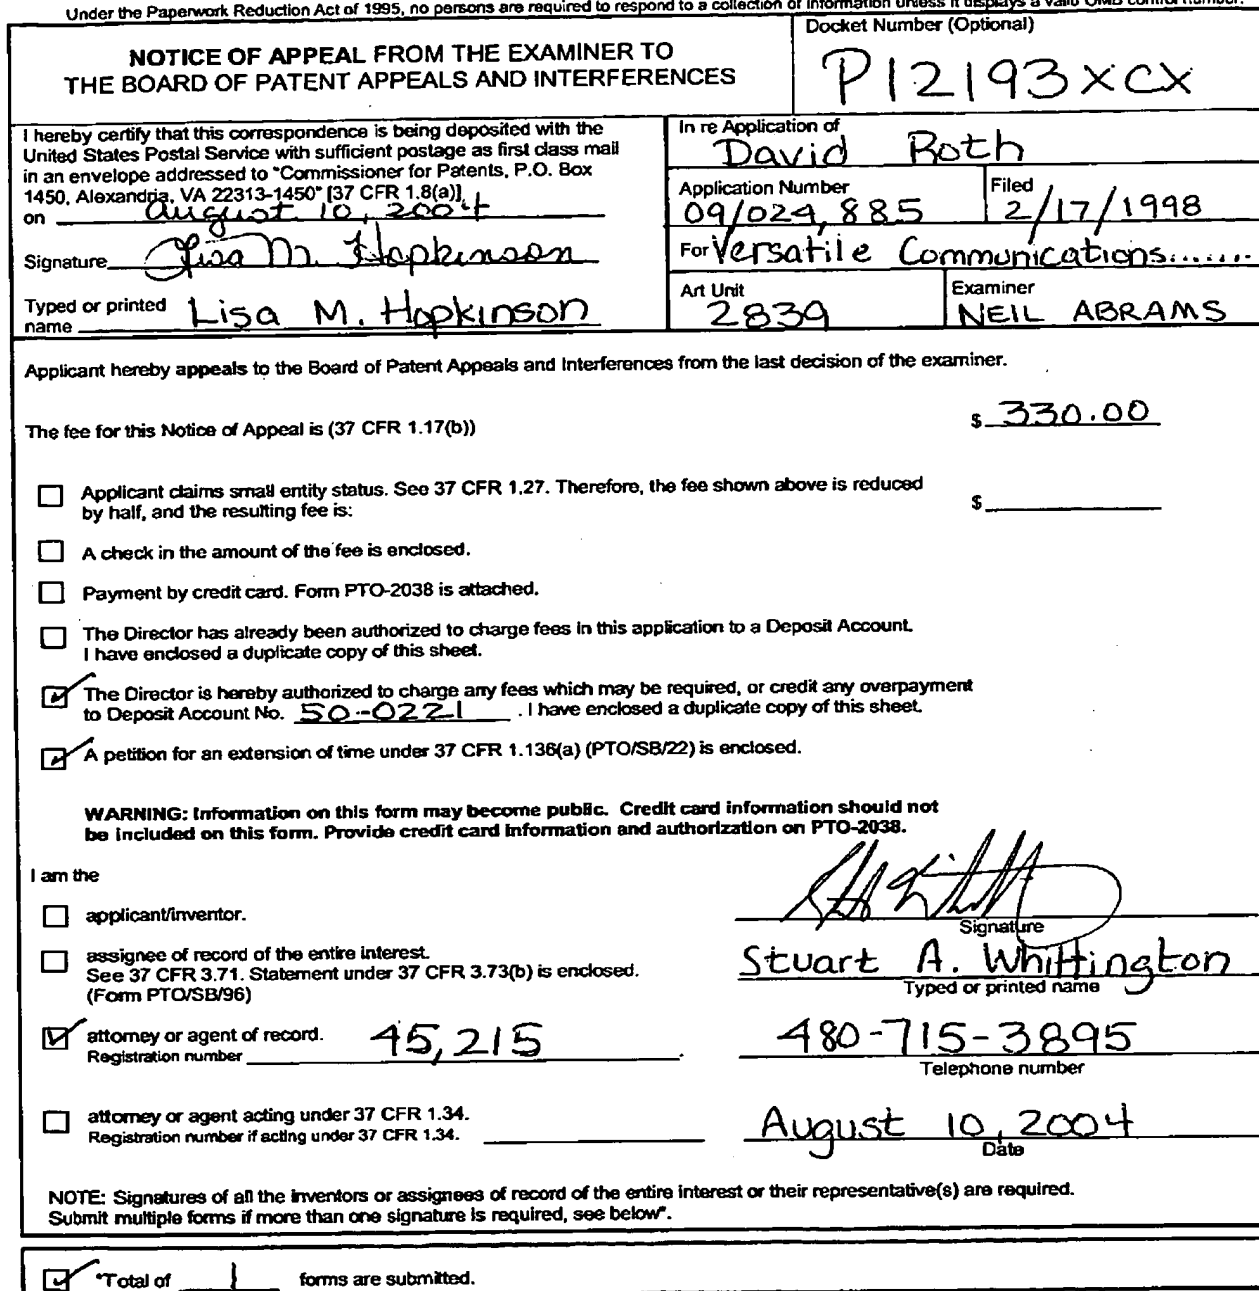 Under the Paperwork Reduction Act of 1995, no persons are required to respond to a collection of information unless it displays a valid OMB control number.
NOTICE OF APPEAL FROM THE EXAMINER TO
THE BOARD OF PATENT APPEALS AND INTERFERENCES
Docket Number (Optional)
P12193XCX
I hereby certify that this correspondence is being deposited with the
United States Postal Service with sufficient postage as first class mail
in an envelope addressed to "Commissioner for Patents, P.O. Box
1450, Alexandria, VA 22313-1450" [37 CFR 1.8(a)],
on August 10, 2004
Signature Lisa M. Hopkinson
Typed or printed
name Lisa M. Hopkinson
In re Application of
David Roth
Application Number
09/024,885
Filed
2/17/1998
For Versatile Communications.......
Art Unit
2839
Examiner
NEIL ABRAMS
Applicant hereby appeals to the Board of Patent Appeals and Interferences from the last decision of the examiner.
The fee for this Notice of Appeal is (37 CFR 1.17(b)) $ 330.00
Applicant claims small entity status. See 37 CFR 1.27. Therefore, the fee shown above is reduced
by half, and the resulting fee is: $
A check in the amount of the fee is enclosed.
Payment by credit card. Form PTO-2038 is attached.
The Director has already been authorized to charge fees in this application to a Deposit Account.
I have enclosed a duplicate copy of this sheet.
The Director is hereby authorized to charge any fees which may be required, or credit any overpayment
to Deposit Account No. 50-0221 . I have enclosed a duplicate copy of this sheet.
A petition for an extension of time under 37 CFR 1.136(a) (PTO/SB/22) is enclosed.
WARNING: Information on this form may become public. Credit card information should not
be included on this form. Provide credit card information and authorization on PTO-2038.
I am the
applicant/inventor.
assignee of record of the entire interest.
See 37 CFR 3.71. Statement under 37 CFR 3.73(b) is enclosed.
(Form PTO/SB/96)
attorney or agent of record.
Registration number 45,215
attorney or agent acting under 37 CFR 1.34.
Registration number if acting under 37 CFR 1.34.
Signature
Stuart A. Whittington
Typed or printed name
480-715-3895
Telephone number
August 10, 2004
Date
NOTE: Signatures of all the inventors or assignees of record of the entire interest or their representative(s) are required.
Submit multiple forms if more than one signature is required, see below*.
*Total of 1 forms are submitted.